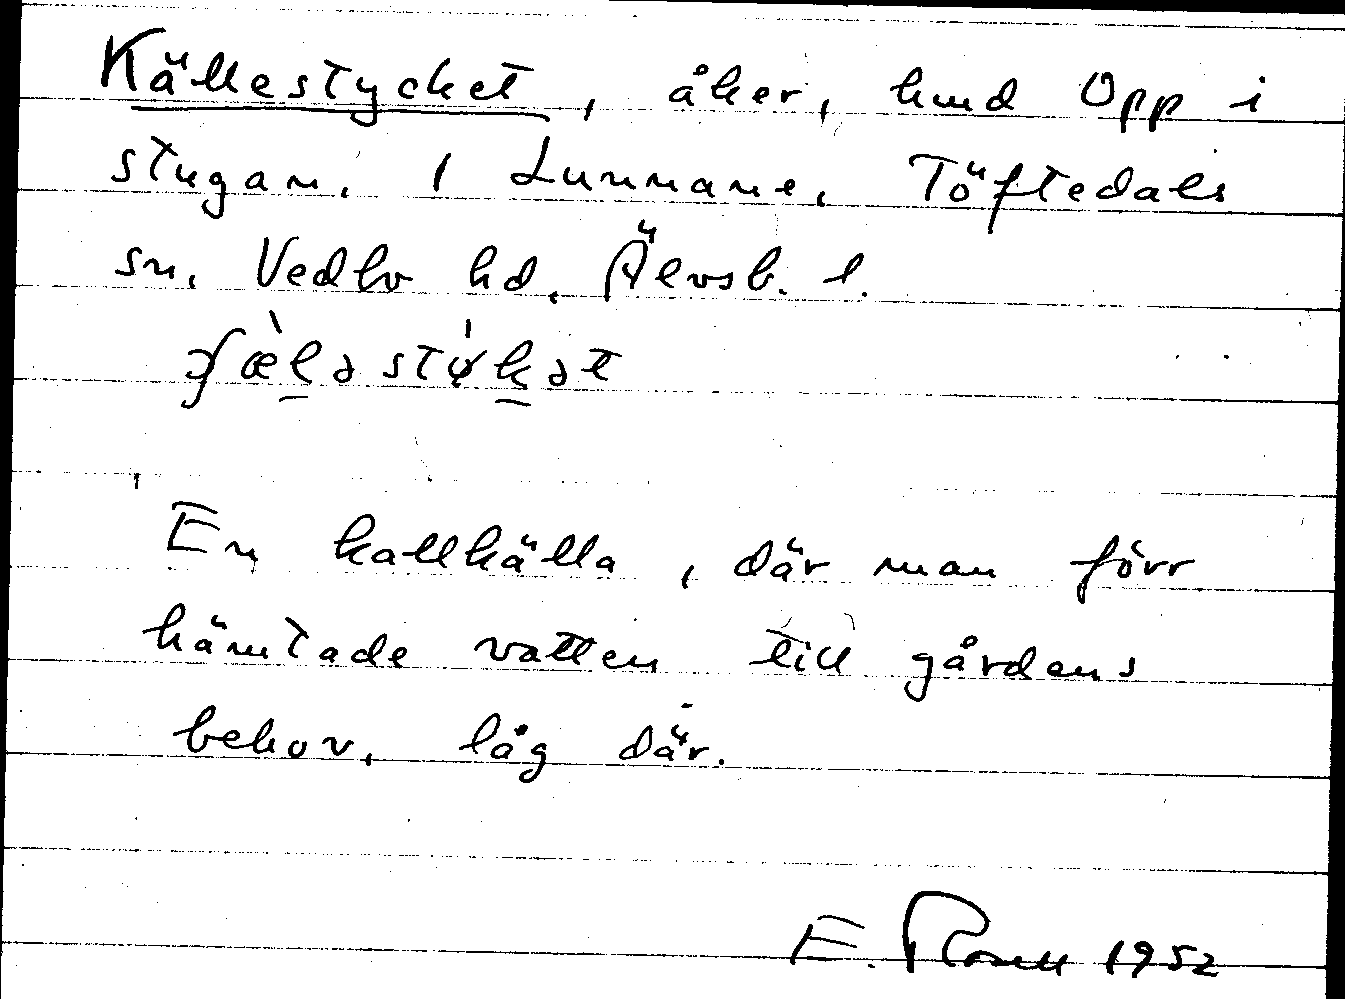 Källestycket, åker, hmd Opp i
stugan, 1 Lunnane, Töftedals
sn, Vedbo hd, Älvsb. l.
En kallkälla, där man förr
hämtade vatten till gårdens
behov, låg där.
E. Rosell 1952